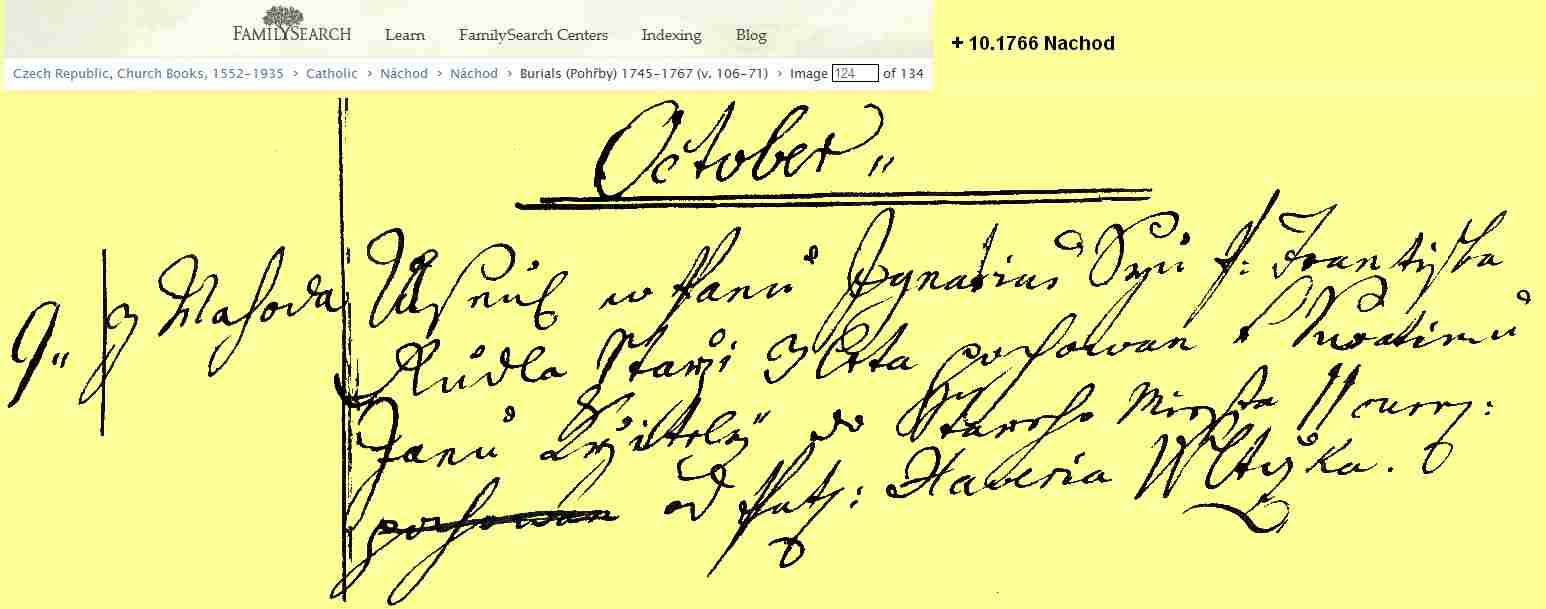 FAMILYSEARCH Learn FamilySearch Centers Indexing Blog
Czech Republic, Church Books, 1552-1935 › Catholic › Náchod › Náchod › Burials (Pohřby) 1745-1767 (v. 106-71) › Image 124 of 134
+ 10.1766 Nachod
October
9 z Nachoda Usnul w Panu Ignatius Syn p: Frantisska
Rudla Starzi 3 letta pochowan k Swatimu
Janu Krztiteli do Stareho Miesta
pochowan od Pat: Xaveria